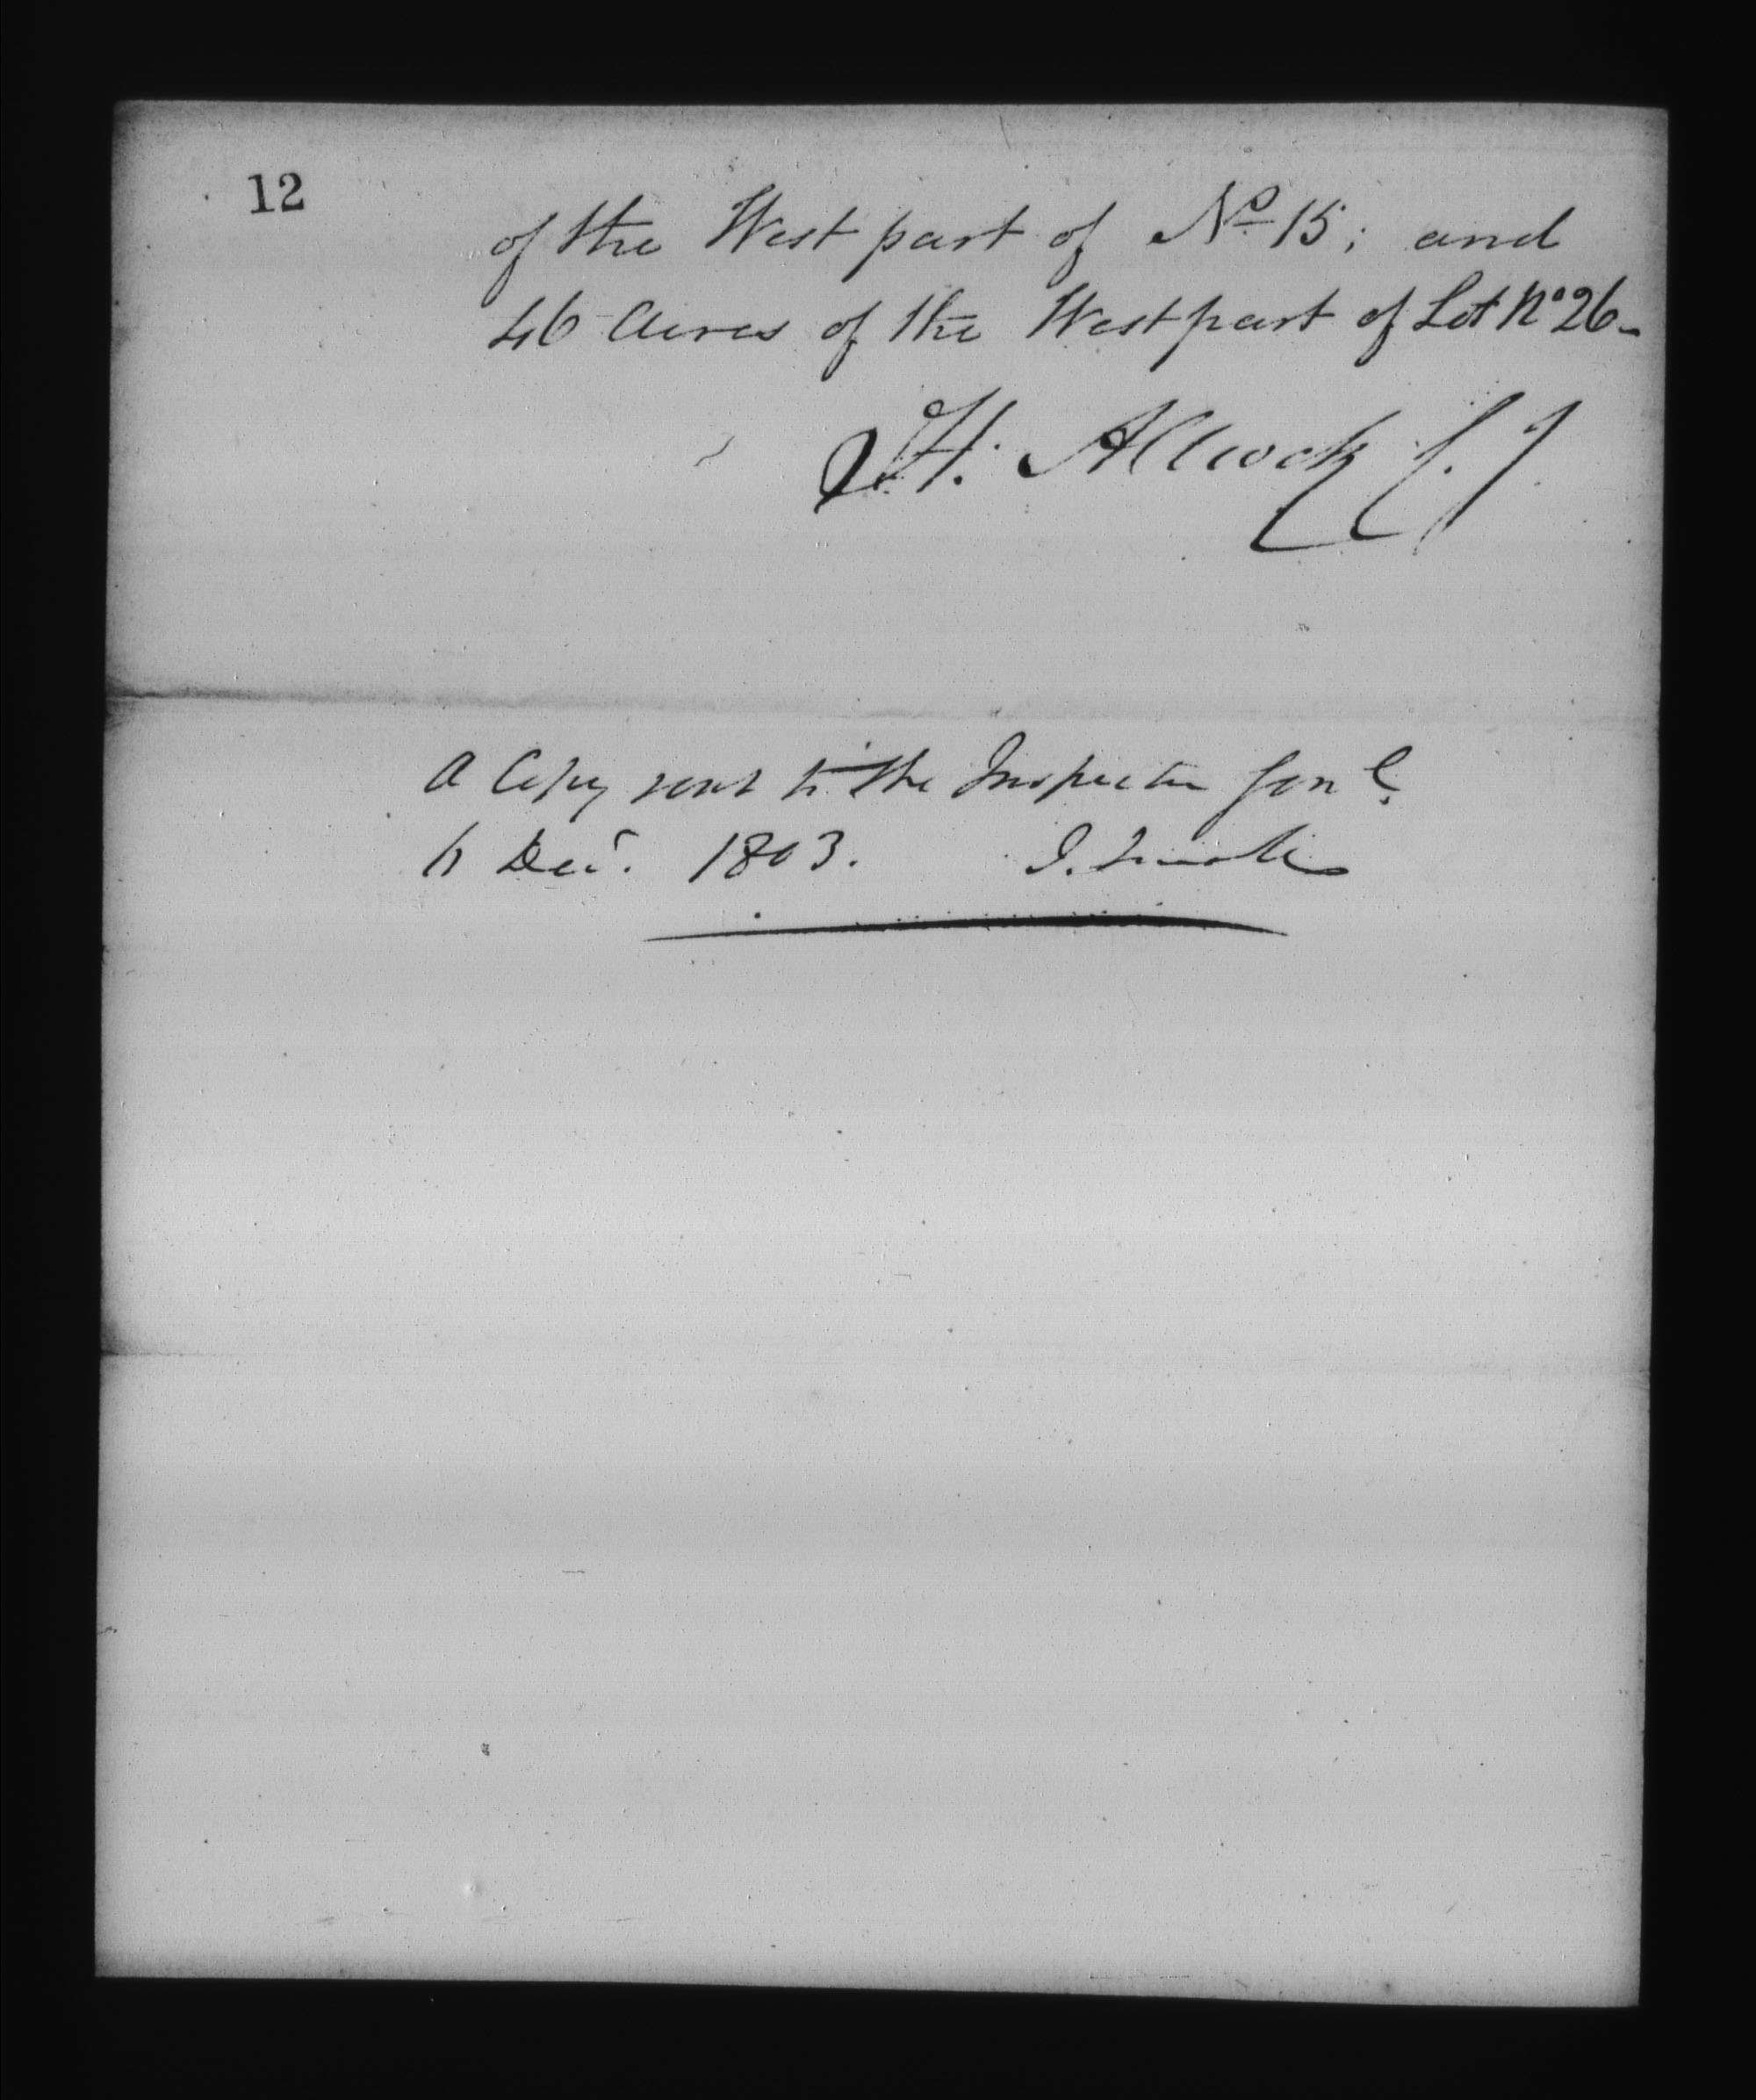 12
of the West part of No. 15; and
46 Acres of the West part of Lot No 26 -
H. Allcock C. J.
A Copy sent to the Inspector Genl.
6 Decr. 1803. J.